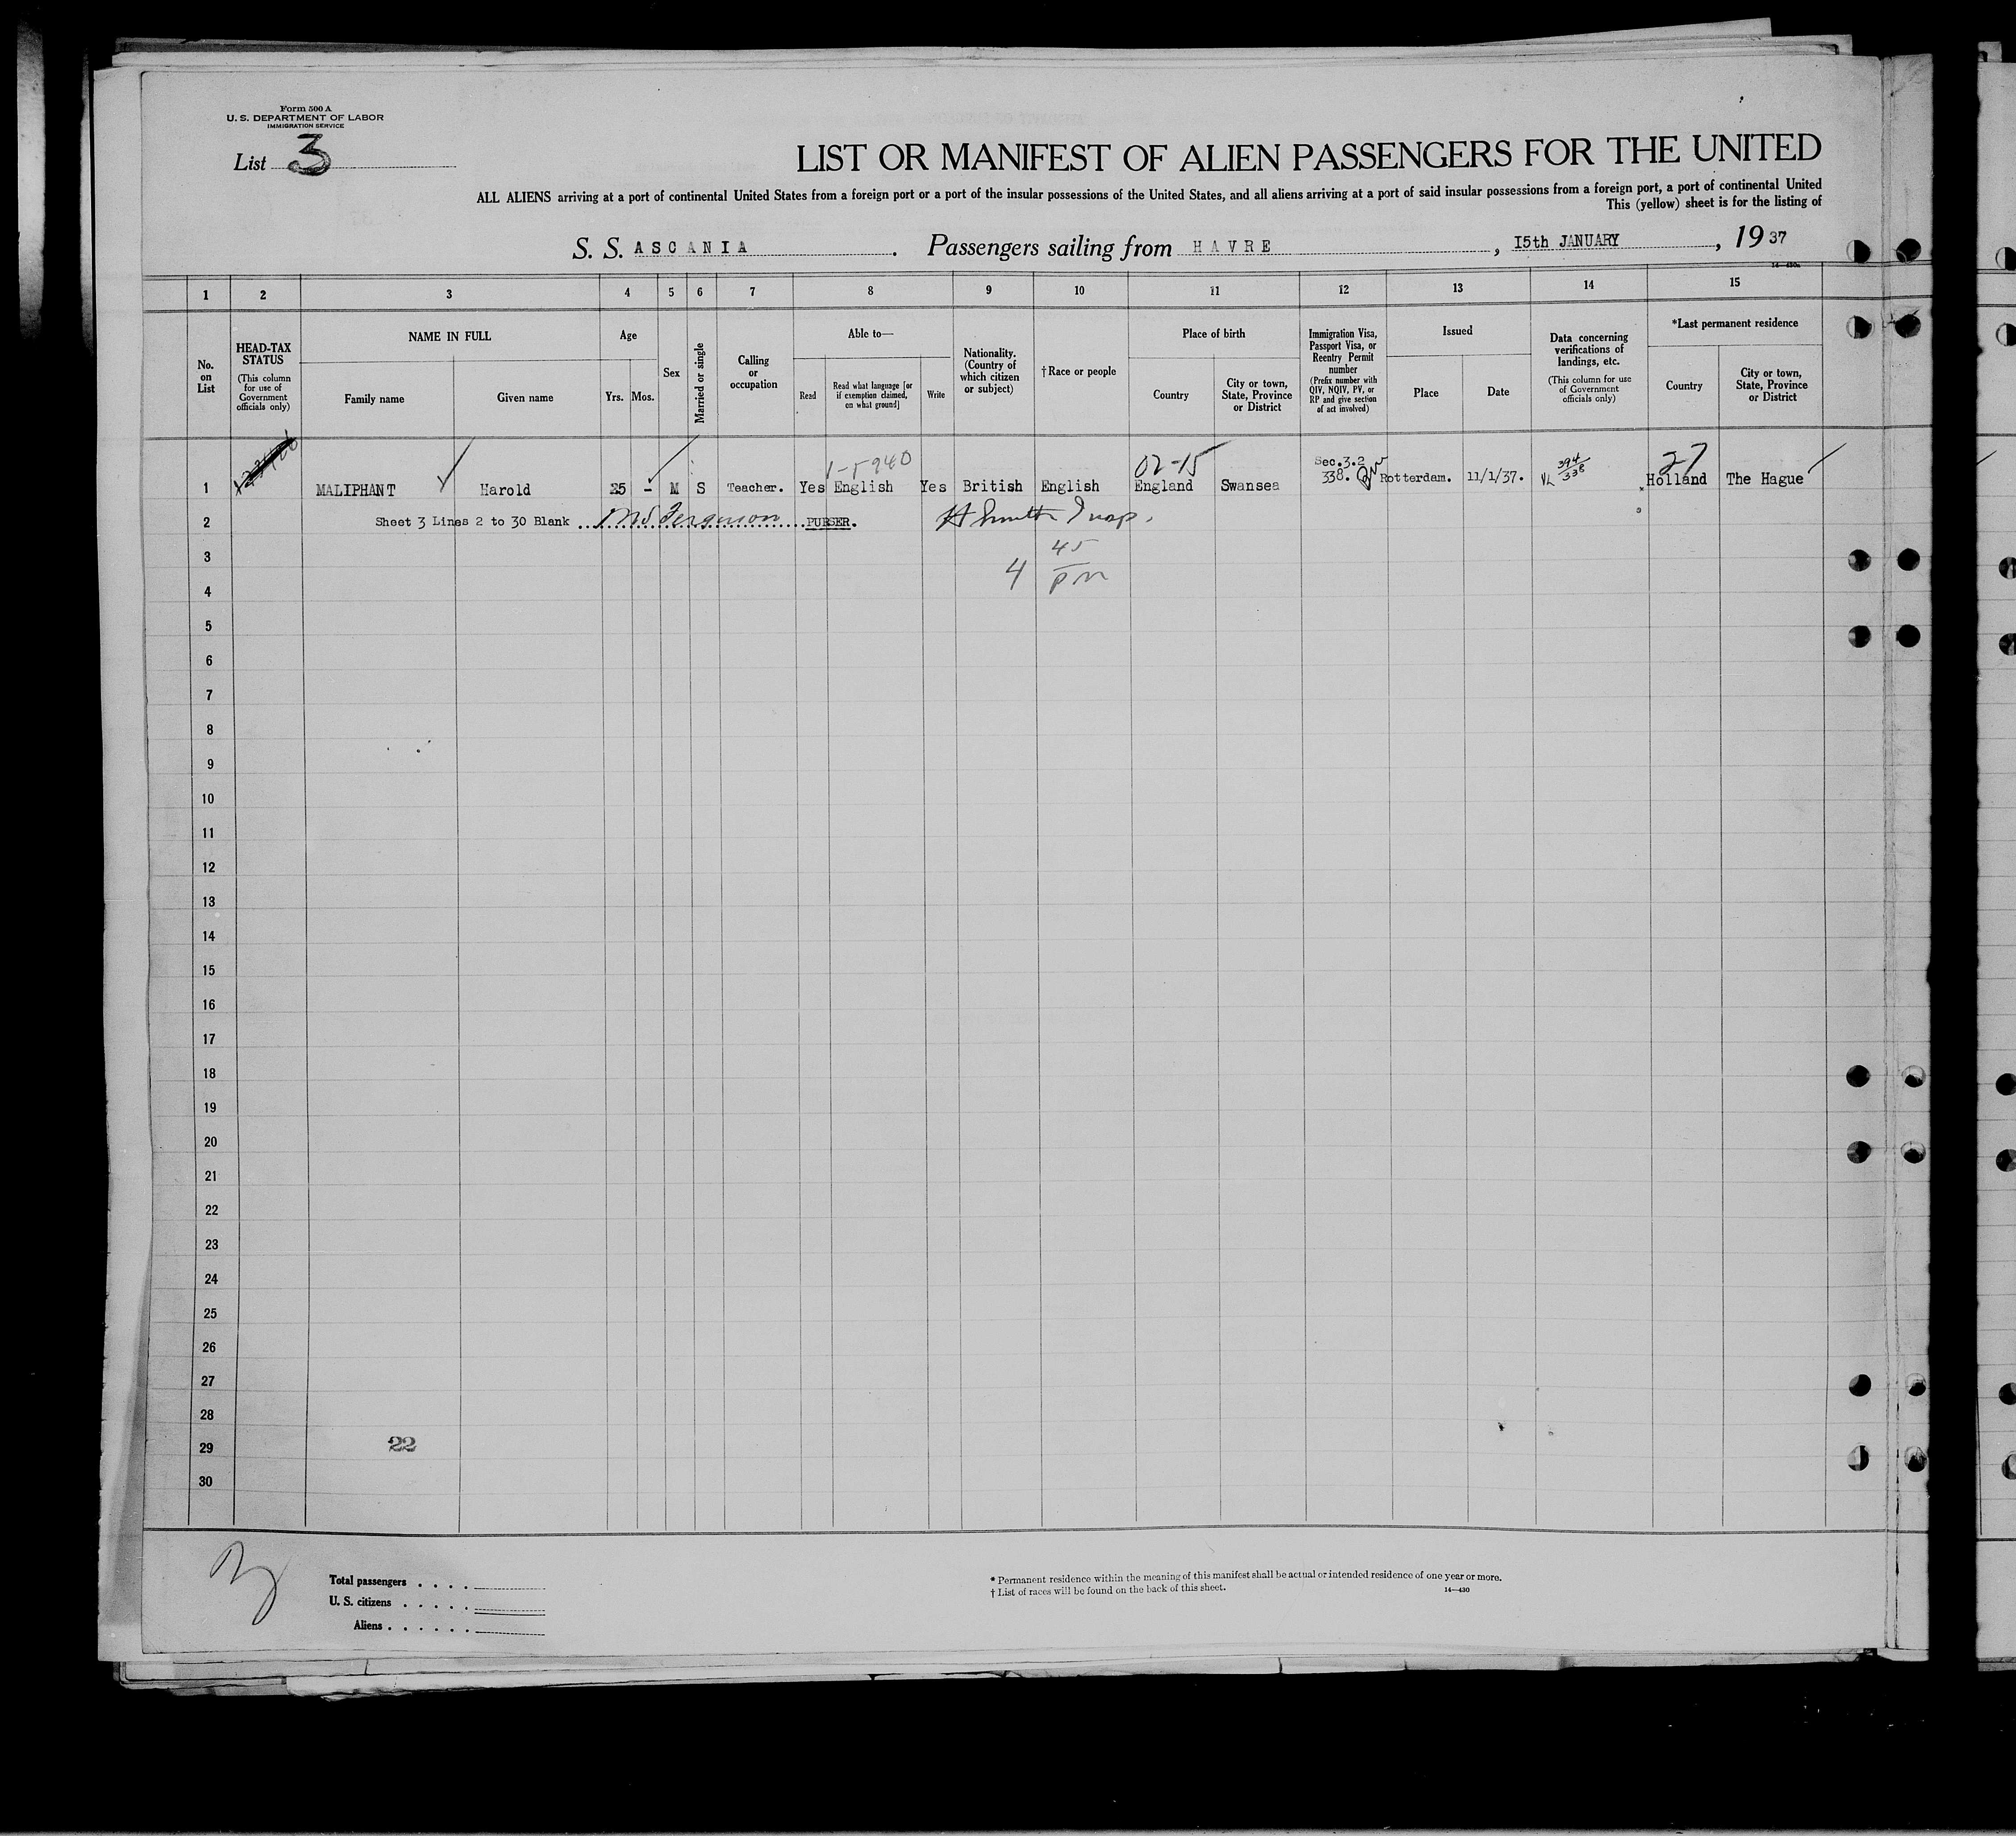 Form 500 A
U. S. DEPARTMENT OF LABOR
IMMIGRATION SERVICE
List 3
LIST OR MANIFEST OF ALIEN PASSENGERS FOR THE UNITED
ALL ALIENS arriving at a port of continental United States from a foreign port or a port of the insular possessions of the United States, and all aliens arriving at a port of said insular possessions from a foreign port, a port of continental United
This (yellow) sheet is for the listing of
S. S. ASCANIA . Passengers sailing from HAVRE , 15th JANUARY , 19 37
1 2 3 4 5 6 7 8 9 10 11 12 13 14 15
No. on List
HEAD-TAX STATUS (This column for use of Government officials only)
NAME IN FULL
Family name
Given name
Age
Yrs. Mos.
Sex
Married or single
Calling or occupation
Able to—
Read
Read what language [or if exemption claimed, on what ground]
Write
Nationality. (Country of which citizen or subject)
†Race or people
Place of birth
Country
City or town, State, Province or District
Immigration Visa, Passport Visa, or Reentry Permit number (Prefix number with QIV, NQIV, PV, or RP and give section of act involved)
Issued
Place
Date
Data concerning verifications of landings, etc. (This column for use of Government officials only)
*Last permanent residence
Country
City or town, State, Province or District
1-5940 02-15 Sec.3.2 394/338 27
1 MALIPHANT Harold 25 - M S Teacher. Yes English Yes British English England Swansea 338. Rotterdam. 11/1/37. Holland The Hague
2 Sheet 3 Lines 2 to 30 Blank Ferguson PURSER. H Smith Insp.
3 45
4 4 PM
5
6
7
8
9
10
11
12
13
14
15
16
17
18
19
20
21
22
23
24
25
26
27
28
29 22
30
Total passengers . . . .
U. S. citizens . . . . .
Aliens . . . . . .
* Permanent residence within the meaning of this manifest shall be actual or intended residence of one year or more.
† List of races will be found on the back of this sheet.
14—430